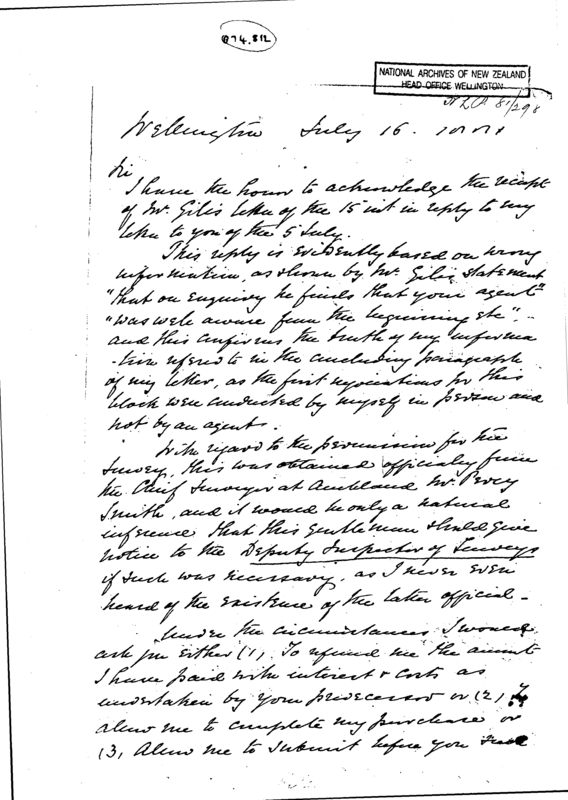 874.812
NATIONAL ARCHIVES OF NEW ZEALAND
HEAD OFFICE WELLINGTON
81/298
Wellington July 16.
Sir
I have the honor to acknowledge the receipt
of Mr. Gill's letter of the 15 inst in reply to my
letter to you of the 5 July.
This reply is evidently based on wrong
information, as shown by Mr. Gill's statement
"that on enquiry he finds that your agent"
"was well aware from the beginning etc" -
and this confirms the truth of my informa
-tion refered to in the concluding paragraph
of my letter, as the first negociations for this
block were conducted by myself in person and
not by an agent.
With regard to the permission for the
Survey, this was obtained officially from
the Chief Surveyor at Auckland Mr. Percy
Smith, and it would be only a natural
inference that this gentleman should give
notice to the Deputy Inspector of Surveys
if such was necessary, as I never even
heard of the existence of the latter official -
Under the circumstances I would
ask you either (1) To refund me the amount
I have paid with interest & costs as
undertaken by your predecessor or (2) To
allow me to complete my purchase or
(3) Allow me to submit before you